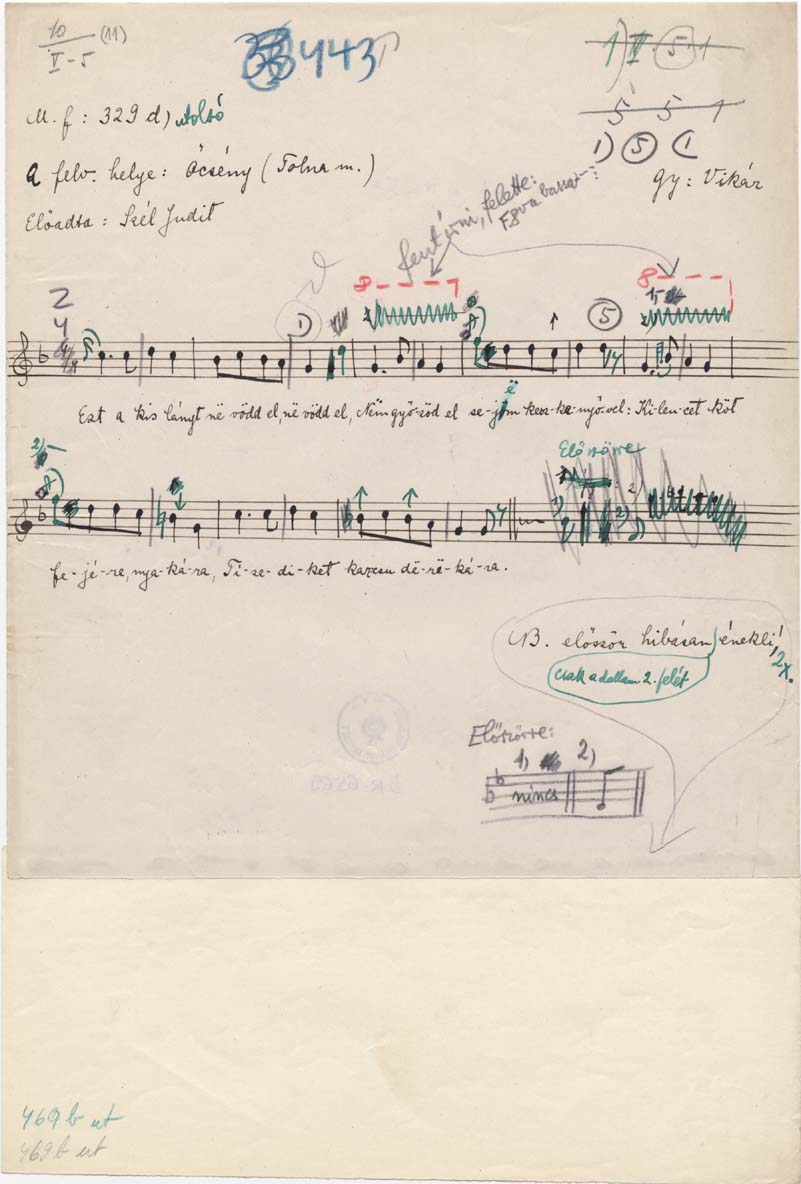 10 (11)
V-5
443
1) II 5 1
M. f: 329 d) utolsó
5 5 1
1) 5 (1
A felv. helye: Őcsény (Tolna m.)
Gy: Vikár
Előadta: Szél Judit
fent írni, felette:
8va bassa
2
4
1)
8
5
8
Ezt a kis lányt në vödd el, në vödd el, Nëm győ-zöd el se-jëm kesz-ke-nyő-vel: Ki-len-cet köt
ë
Előszörre
2)
fe-jé-re, nya-ká-ra, Ti-ze-di-ket karcsu dë-rë-ká-ra.
NB. először hibásan énekli!
csak a dallam 2. felét
2x.
Előszörre:
1) 2)
nincs
469 b ut
469 b ut